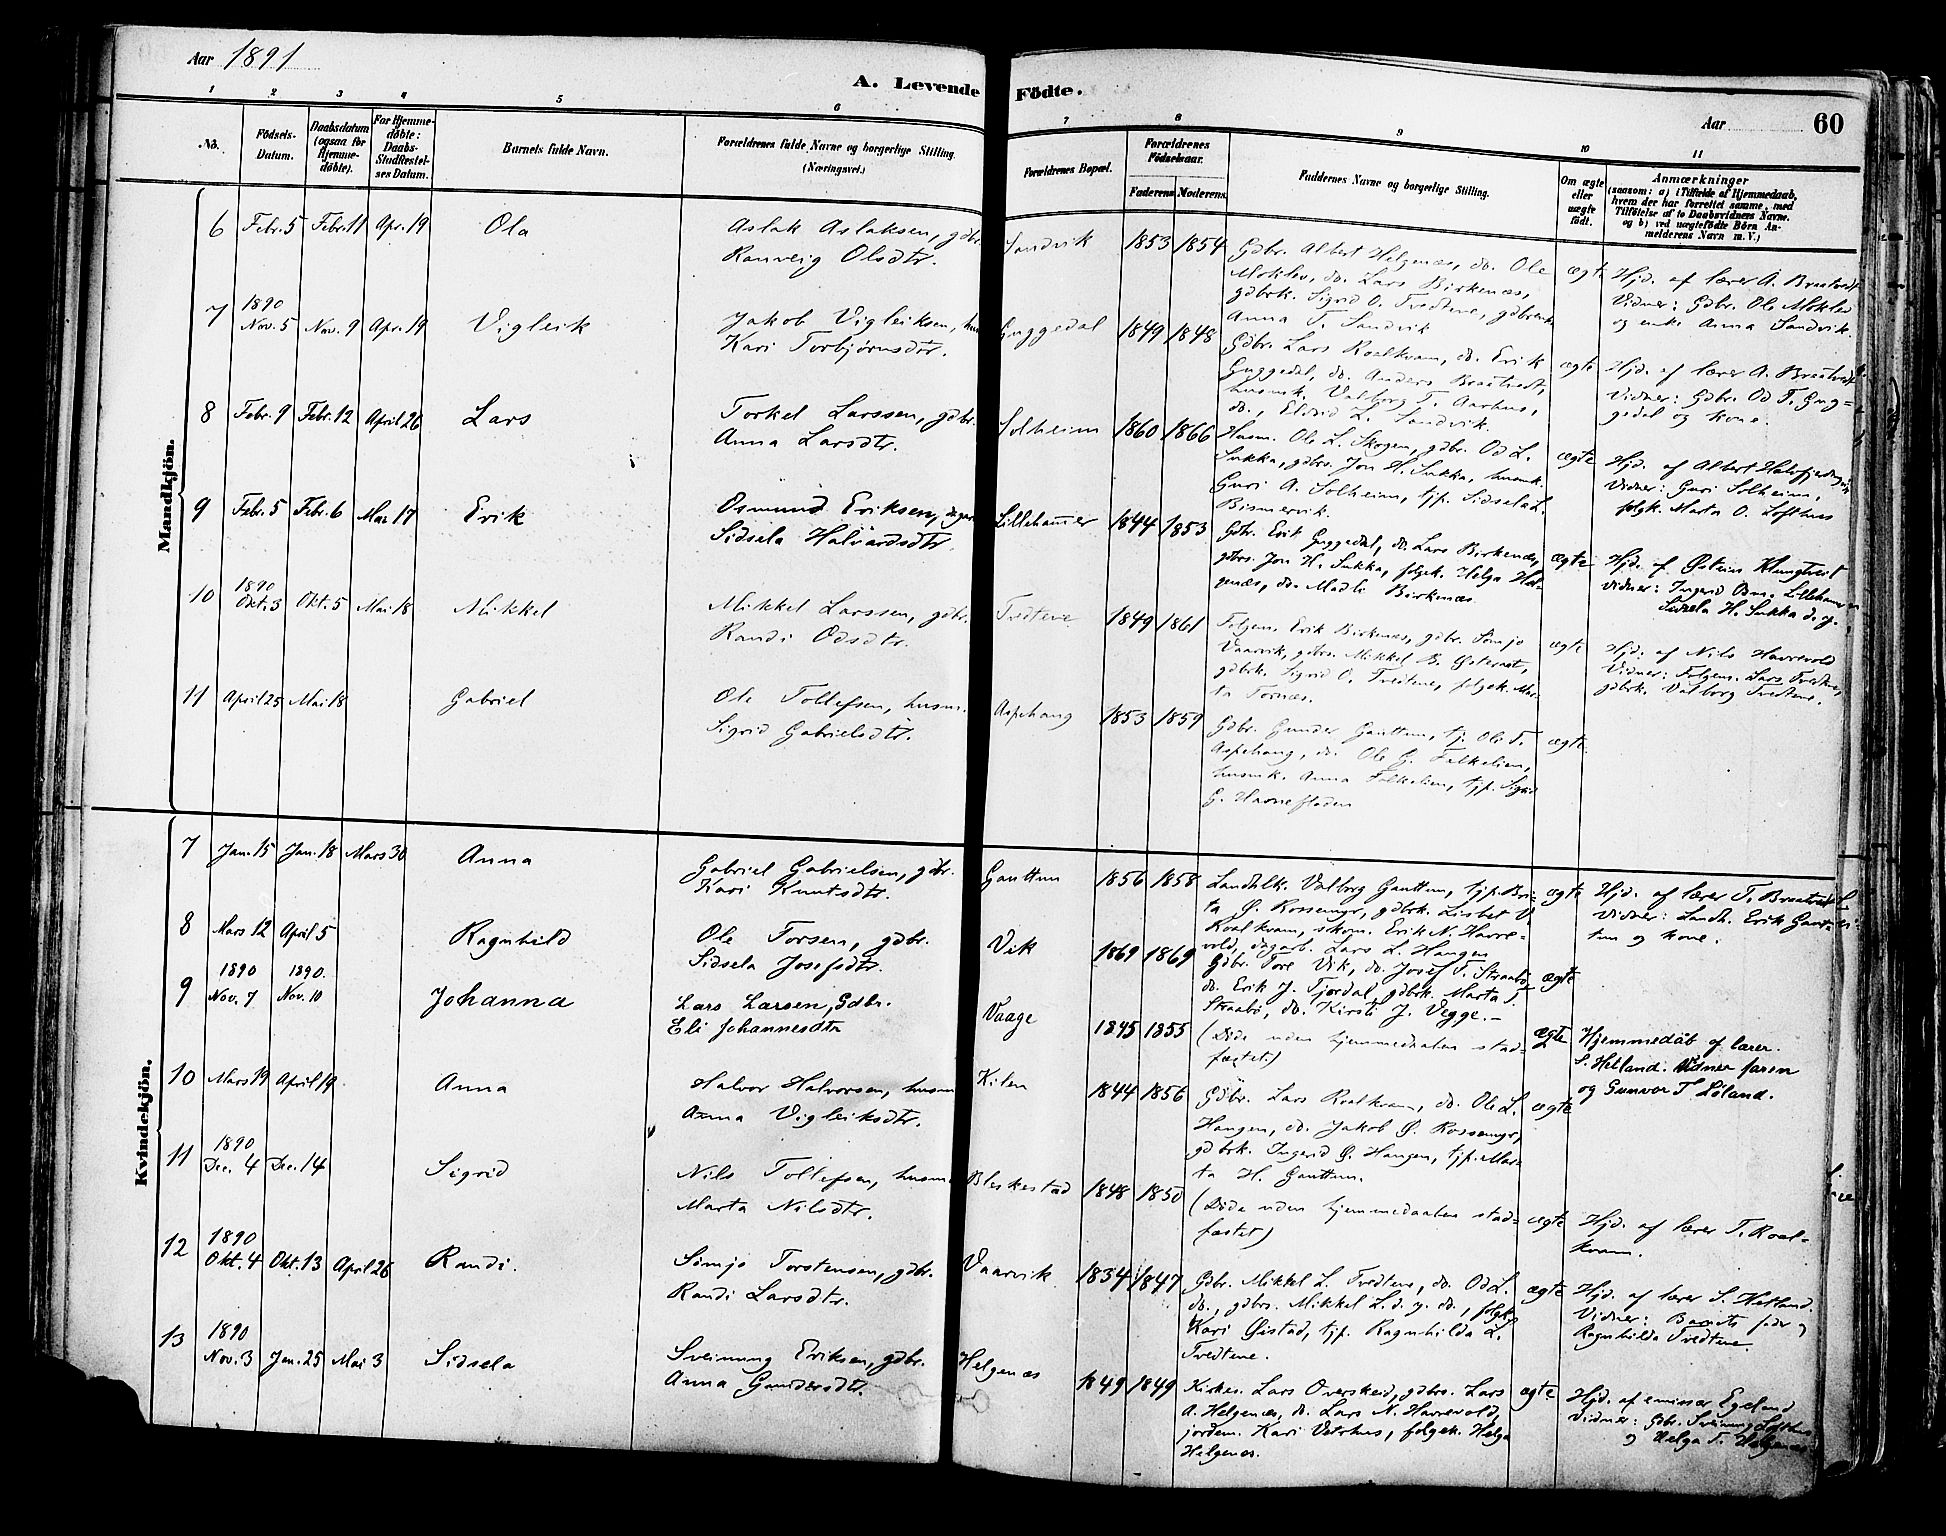 Aar 1891
A. Levende Födte.
Aar
60
1 2 3 4 5 6 7 8 9 10 11
No.
Födsels-
Datum.
Daabsdatum
(ogsaa for
Hjemme-
døbte).
For Hjemme-
døbte:
Daabs-
Stadfæstel-
ses Datum.
Barnets fulde Navn.
Forældrenes fulde Navne og borgerlige Stilling.
(Næringsvei.)
Forældrenes Bopæl.
Forældrenes
Födselsaar.
Faderens Moderens.
Faddernes Navne og borgerlige Stilling.
Om ægte
eller
uægte
født.
Anmærkninger
(saasom: a) i Tilfælde af Hjemmedaab,
hvem der har forrettet samme, med
Tilföielse af to Daabsvidners Navne.
og b) ved uægtefödte Börn An-
melderens Navn m. V.)
Mandkjön.
6 Febr. 5 Febr. 11 Apr. 19 Ola
Aslak Aslaksen, gdbr.
Ranveig Olsdtr.
Sandvik 1853 1854
Gdbr. Albert Helgenæs, do. Ole
Moklev, do. Lars Birkenæs,
gdbrk. Sigrid O. Tvedtene, gdbrenke
Anna T. Sandvik
ægte
Hjd. af lærer A. Braatvedt
Vidner: Gdbr. Ole Moklev
og enke Anna Sandvik.
7 1890
Nov. 5 Nov. 9 Apr. 19 Vigleik
Jakob Vigleiksen, hus
Kari Torbjørnsdtr.
Guggedal 1849 1848
Gdbr. Lars Roalkvam, do. Erik
Guggedal, do. Anders Braatvedt,
husmk. Valborg T. Aarhus,
do., Eldrid L. Sandvik.
ægte
Hjd. af lærer A. Braatvedt
Vidner: Gdbr. Od T. Gug=
gedal og kone.
8 Febr. 9 Febr. 12 April 26 Lars
Torkel Larssen, gdbr.
Anna Larsdtr.
Solheim 1860 1866
Husm. Ole L. Skogen, gdbr. Od L.
Sukka, gdbrs. Jon H. Sukka, husmk.
Guri A. Solheim, tjp. Sidsela L.
Bismervik.
ægte
Hjd. af Albert
Vidner: Guri Solheim,
folgk. Marta O. Lofthus
9 Febr. 5 Febr. 6 Mai 17 Erik
Osmund Eriksen,
Sidsela Halvardsdtr.
Lillehamer 1844 1853
Gdbr. Erik Guggedal, do. Lars Birkenæs,
gdbrs. Jon H. Sukka, folgek. Helga Hel-
genæs, do. Madli Birkenæs.
ægte
Hjd. af Østein Klungtveit
Vidner: Ingerid Osm. Lillehamer
Sidsela H. Sukka d. y.
10 1890
Okt. 3 Okt. 5 Mai 18 Mikkel
Mikkel Larssen, gdbr.
Randi Odsdtr.
Tvedtene 1849 1861
Folgem. Erik Birkenæs, gdbr. Sømjo
Vaarvik, gdbrs. Mikkel B. Østernæs,
gdbrk. Sigrid O. Tvedtene, folgek. Mar-
ta Tornæs.
ægte
Hjd. af Nils Havrevold
Vidner: Folgem. Lars Tvedtene,
gdbrk. Valborg Tvedtene.
11 April 25 Mai 18 Gabriel
Ole Tollefsen, husm.
Sigrid Gabrielsdtr.
Aspehaug 1853 1859
Gdbr. Gunder Gauttun, tj. Ole T.
Aspehaug, do. Ole G. Falkelien,
husmk. Anna Falkelien, tjp. Sigrid
G. Havreflaaden
ægte.
Kvindekjön.
7 Jan. 15 Jan. 18 Mars 30 Anna
Gabriel Gabrielsen, gdbr.
Kari Knutsdtr.
Gauttun 1856 1858
Landhlk. Valborg Gauttun, tjp. Bri-
ta Ø. Rossemyr, gdbrk. Lisbet V.
Roalkvam, skom. Erik N. Havre-
vold, dagarb. Lars L. Haugen
ægte
Hjd. af lærer T. Braatvedt
Vidner: Landh. Erik Gaut-
tun og kone.
8 Mars 12 April 5 Ragnhild
Ole Torsen, gdbr.
Sidsela Josefsdtr.
Vik 1869 1869
Gdbr. Tore Vik, do. Josef T. Straabø,
do. Erik J. Fjordal, gdbrk. Marta T.
Straabø, do. Kirsti J. Vegge.-
ægte
9 1890 1890.
Nov. 7 Nov. 10 Johanna
Lars Larsen, Gdbr.
Eli Johannesdtr
Vaage 1845 1855
(Døde uden hjemmedaaben stad-
fæstet.)
ægte
Hjemmedøbt af lærer
S. Hetland. Vidner faren
og Gunvor T Løland.
10 Mars 19 April 19 Anna
Halvor Halvorsen, husm
Anna Vigleiksdtr.
Kilen 1844 1856
Gdbr. Lars Roalkvam, do. Ole L.
Haugen, do. Jakob Ø. Rossemyr,
gdbrk. Ingerid Ø. Haugen, tjp. Mar-
ta H. Gauttun.
ægte
11 1890
Dec. 4 Dec. 14 Sigrid
Nils Tollefsen, husm
Marta Nilsdtr.
Bleskestad 1848 1850
(Døde uden hjemmedaaben stad=
fæstet)
ægte
Hjd. af lærer T. Roal-
kvam.
12 1890
Okt. 4 Okt. 13 April 26 Randi.
Sømjo Torstensen, gdbr.
Randi Larsdtr.
Vaarvik 1834 1847
Gdbr. Mikkel L. Tvedtene, do. Od L.
do., gdbrs. Mikkel L. d. y. do., folgk.
Kari Øistad, tjp. Ragnhilda L.
Tvedtene.
ægte
Hjd. af lærer S. Hetland.
Vidner: Barnets fader og
Ragnhilda Tvedtene.
13 1890
Nov. 3 Jan. 25 Mai 3 Sidsela
Sveinung Eriksen, gdbr.
Anna Gundersdtr.
Helgenæs 1849 1849
Kirkes. Lars Overskeid, gdbrs. Lars
A. Helgenæs, do. Lars N. Havrevold,
jordem. Kari Vetrhus, folgek. Helga
Helgenæs.
ægte
Hjd. af emissær Egeland
Vidner: Gdbr. Sveinung Lofthus
og Helga T. Helgenæs